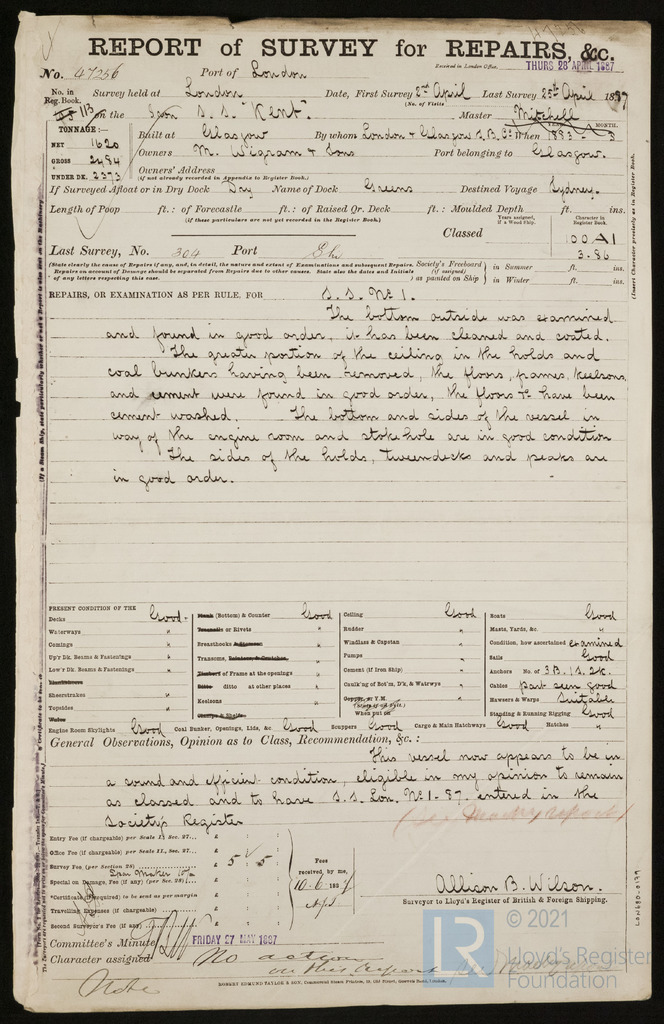 REPORT of SURVEY for REPAIRS, &c.
No. 47256 Port of London
Received in London Office, THURS 28 APRIL 1887
No. in Reg. Book. Survey held at London Date, First Survey 2nd April Last Survey 25th April 1887
(No. of Visits
113 on the Iron S.S. "Kent" Master Mitchell
TONNAGE:— YEAR. MONTH.
NET 1620 Built at Glasgow By whom London & Glasgow S.B. Co When 1883 - 3
GROSS 2484 Owners M. Wigram & Sons Port belonging to Glasgow.
UNDER DK. 2373 Owners' Address
(if not already recorded in Appendix to Register Book.)
If Surveyed Afloat or in Dry Dock Dry Name of Dock Greens Destined Voyage Sydney.
Length of Poop ft.: of Forecastle ft.: of Raised Qr. Deck ft.: Moulded Depth ft. ins.
(If these particulars are not yet recorded in the Register Book.)
Years assigned, if a Wood Ship. Character in Register Book.
Classed 100 A1
3.86
Last Survey, No. 304 Port
(State clearly the cause of Repairs if any, and, in detail, the nature and extent of Examinations and subsequent Repairs.
Repairs on account of Damage should be separated from Repairs due to other causes. State also the dates and Initials
of any letters respecting this case.
Society's Freeboard (if assigned) as painted on Ship in Summer ft. ins.
in Winter ft. ins.
(Insert Character precisely as in Register Book.
REPAIRS, OR EXAMINATION AS PER RULE, FOR S.S. No 1.
The bottom outside was examined
and found in good order, it has been cleaned and coated.
The greater portion of the ceiling in the holds and
coal bunkers having been removed, the floors, frames, keelsons,
and cement were found in good order, the floors &c have been
cement washed. The bottom and sides of the vessel in
way of the engine room and stokehole are in good condition
The sides of the holds, tweendecks and peaks are
in good order.
PRESENT CONDITION OF THE
Decks Good
Waterways "
Comings "
Up'r Dk. Beams & Fastenings "
Low'r Dk. Beams & Fastenings "
Sheerstrakes "
Topsides "
Wales
Plank (Bottom) & Counter Good
Treenails or Rivets "
Breasthooks & Stemson "
Transoms, Pointers, & Crutches "
Timbers of Frame at the openings "
Ditto ditto at other places "
Keelsons "
Clamps & Shelfs
Ceiling Good
Rudder "
Windlass & Capstan "
Pumps "
Cement (if Iron Ship) "
Caulk'ng of Bot'm, D'k, & Watrwys "
Copper, or Y.M.
When put on
Boats Good
Masts, Yards, &c. "
Condition, how ascertained examined
Sails Good
Anchors No. of 3B. 1S. 2K.
Cables part seen good
Hawsers & Warps Suitable
Standing & Running Rigging Good
Engine Room Skylights Good Coal Bunker, Openings, Lids, &c. Good Scuppers Good Cargo & Main Hatchways Good Hatches "
General Observations, Opinion as to Class, Recommendation, &c.:
This vessel now appears to be in
a sound and efficient condition, eligible in my opinion to remain
as classed and to have S.S. Lon. No 1-87 entered in the
Society's Register
Entry Fee (if chargeable) per Scale I., Sec. 27... £ : :
Office Fee (if chargeable) per Scale II., Sec. 27... £ : :
Survey Fee (per Section 28) £ 5 : 5 :
Special on Damage, Fee (if any) (per Sec. 28) £ : :
*Certificate (if required) to be sent as per margin
Travelling Expenses (if chargeable) £ : :
Second Surveyor's Fee (if any) £ : :
Fees received by me, 10.6.1887
Allison B. Wilson.
Surveyor to Lloyd's Register of British & Foreign Shipping.
Committee's Minute FRIDAY 27 MAY 1887
Character assigned No action
on this report
Note
ROBERT EDMUND TAYLOR & SON, Commercial Steam Printers, 19, Old Street, Goswell Road, London.
LON680-0179
LR
© 2021
Lloyd's Register
Foundation